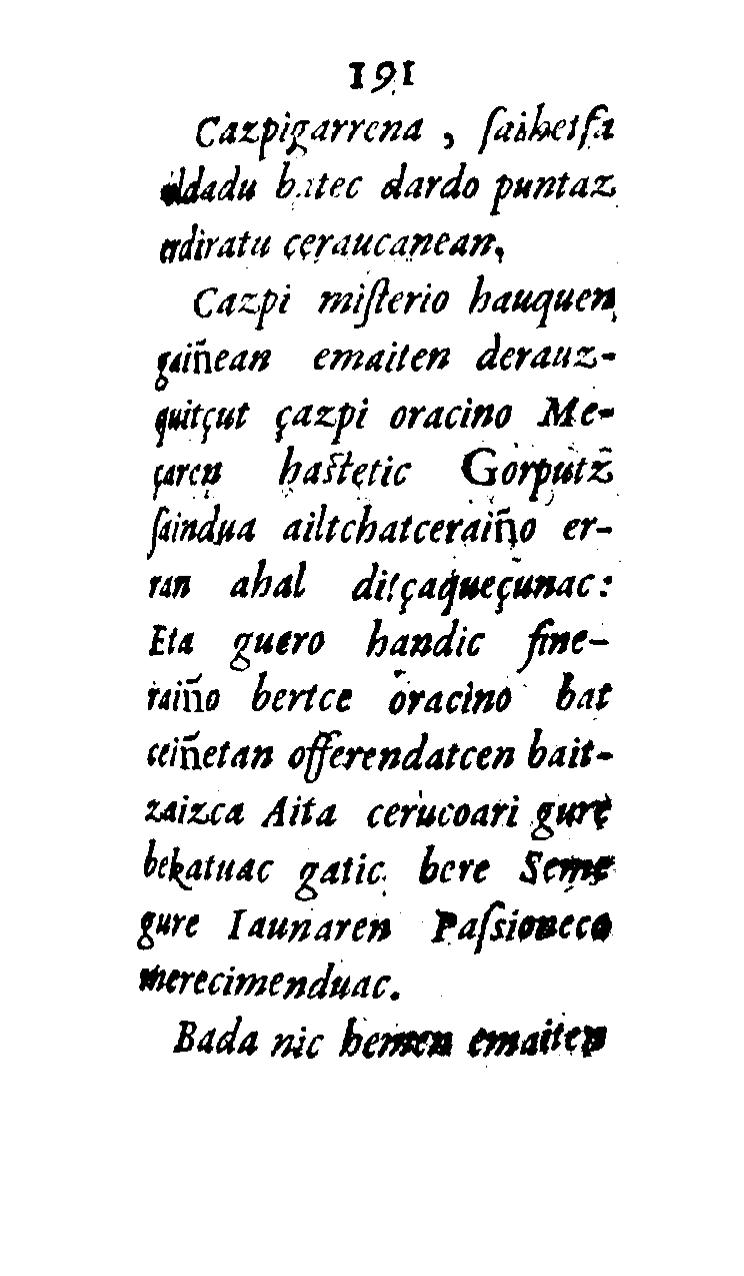 191
Cazpigarrena, ſaihetſa
ldadu batec dardo puntaz
erdiratu çeraucanean,
Cazpi miſterio hauquen
gaiñean emaiten derauz-
quitçut çazpi oracino Me-
çaren haſtetic Gorputz
ſaindua ailtchatceraiño er-
ran ahal ditçaqueçunac:
Eta guero handic fine-
raiño bertce oracino bat
ceiñetan offerendatcen bait-
zaizca Aita cerucoari gure
bekatuac gatic bere Seme
gure Iaunaren Paſsioneco
merecimenduac.
Bada nic hemen emaiten